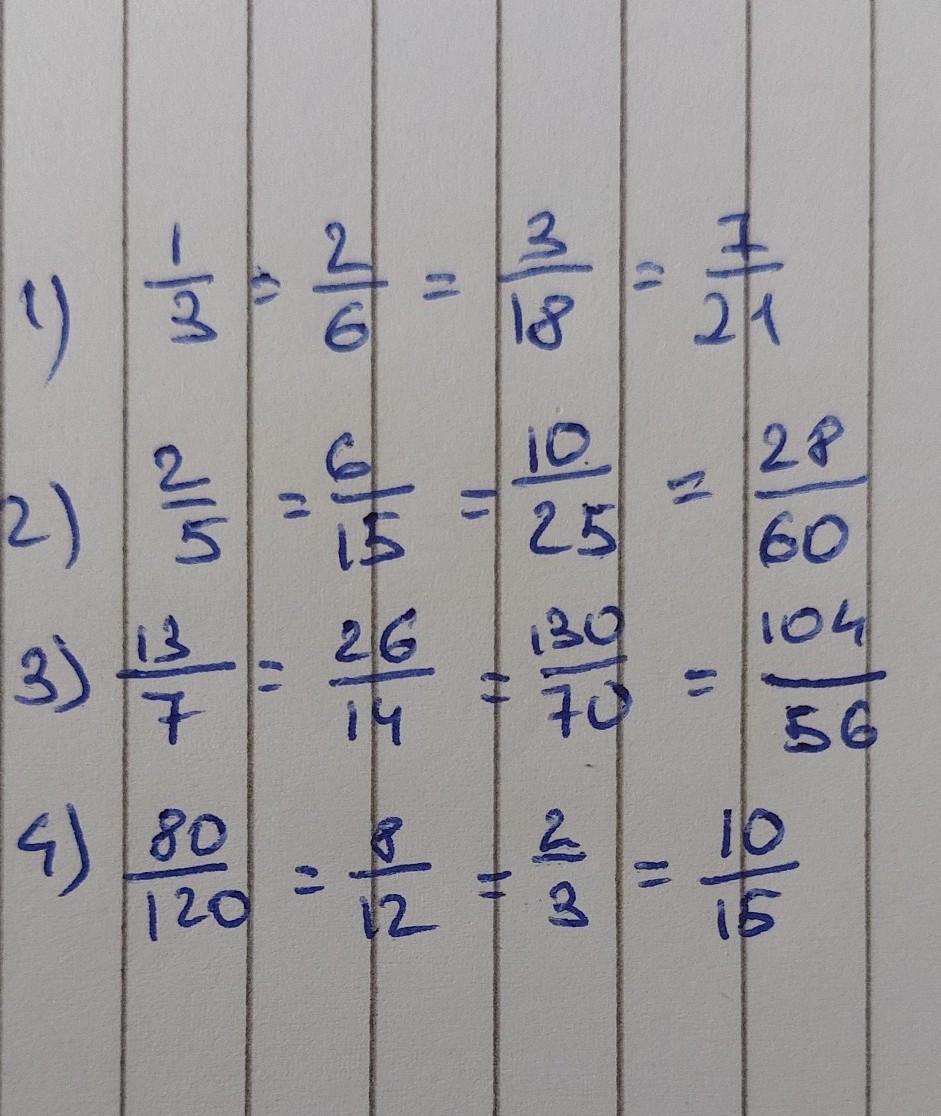 1) 1/3 = 2/6 = 3/18 = 7/21
2) 2/5 = 6/15 = 10/25 = 28/60
3) 13/7 = 26/14 = 130/70 = 104/56
4) 80/120 = 8/12 = 2/3 = 10/15